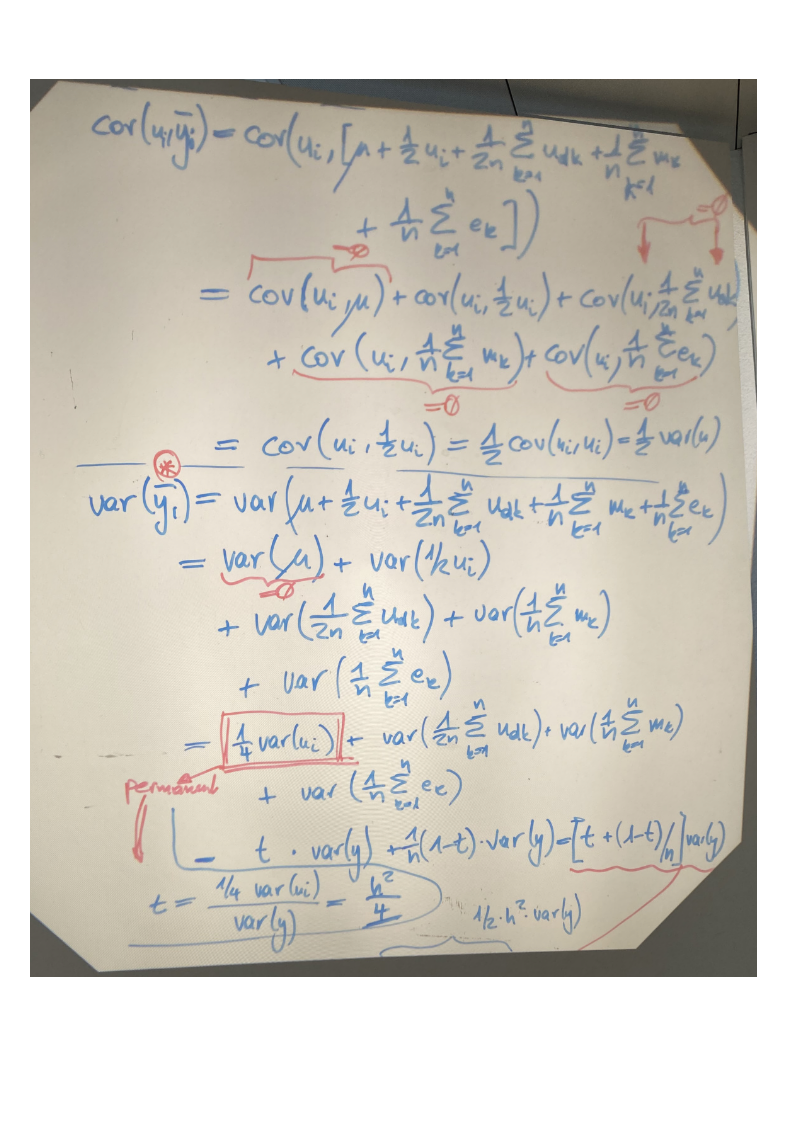 cov(u_i, ȳ_i) = cov(u_i, [μ + 1/2 u_i + 1/2n Σ_{k=1}^{n} u_{dk} + 1/n Σ_{k=1}^{n} m_k
+ 1/n Σ_{k=1}^{n} e_k])
=∅
=∅
= cov(u_i, μ) + cov(u_i, 1/2 u_i) + cov(u_i, 1/2n Σ_{k=1}^{n} u_{dk})
+ cov(u_i, 1/n Σ_{k=1}^{n} m_k) + cov(u_i, 1/n Σ_{k=1}^{n} e_k)
=∅ =∅
= cov(u_i, 1/2 u_i) = 1/2 cov(u_i, u_i) = 1/2 var(u)
*
var(ȳ_i) = var(μ + 1/2 u_i + 1/2n Σ_{k=1}^{n} u_{dk} + 1/n Σ_{k=1}^{n} m_k + 1/n Σ_{k=1}^{n} e_k)
= var(μ) + var(1/2 u_i)
=∅
+ var(1/2n Σ_{k=1}^{n} u_{dk}) + var(1/n Σ_{k=1}^{n} m_k)
+ var(1/n Σ_{k=1}^{n} e_k)
= 1/4 var(u_i) + var(1/2n Σ_{k=1}^{n} u_{dk}) + var(1/n Σ_{k=1}^{n} m_k)
permanent
+ var(1/n Σ_{k=1}^{n} e_k)
= t · var(y) + 1/n (1-t) · var(y) = [t + (1-t)/n] var(y)
t = 1/4 var(u_i) / var(y) = h²/4
1/2 · h² · var(y)